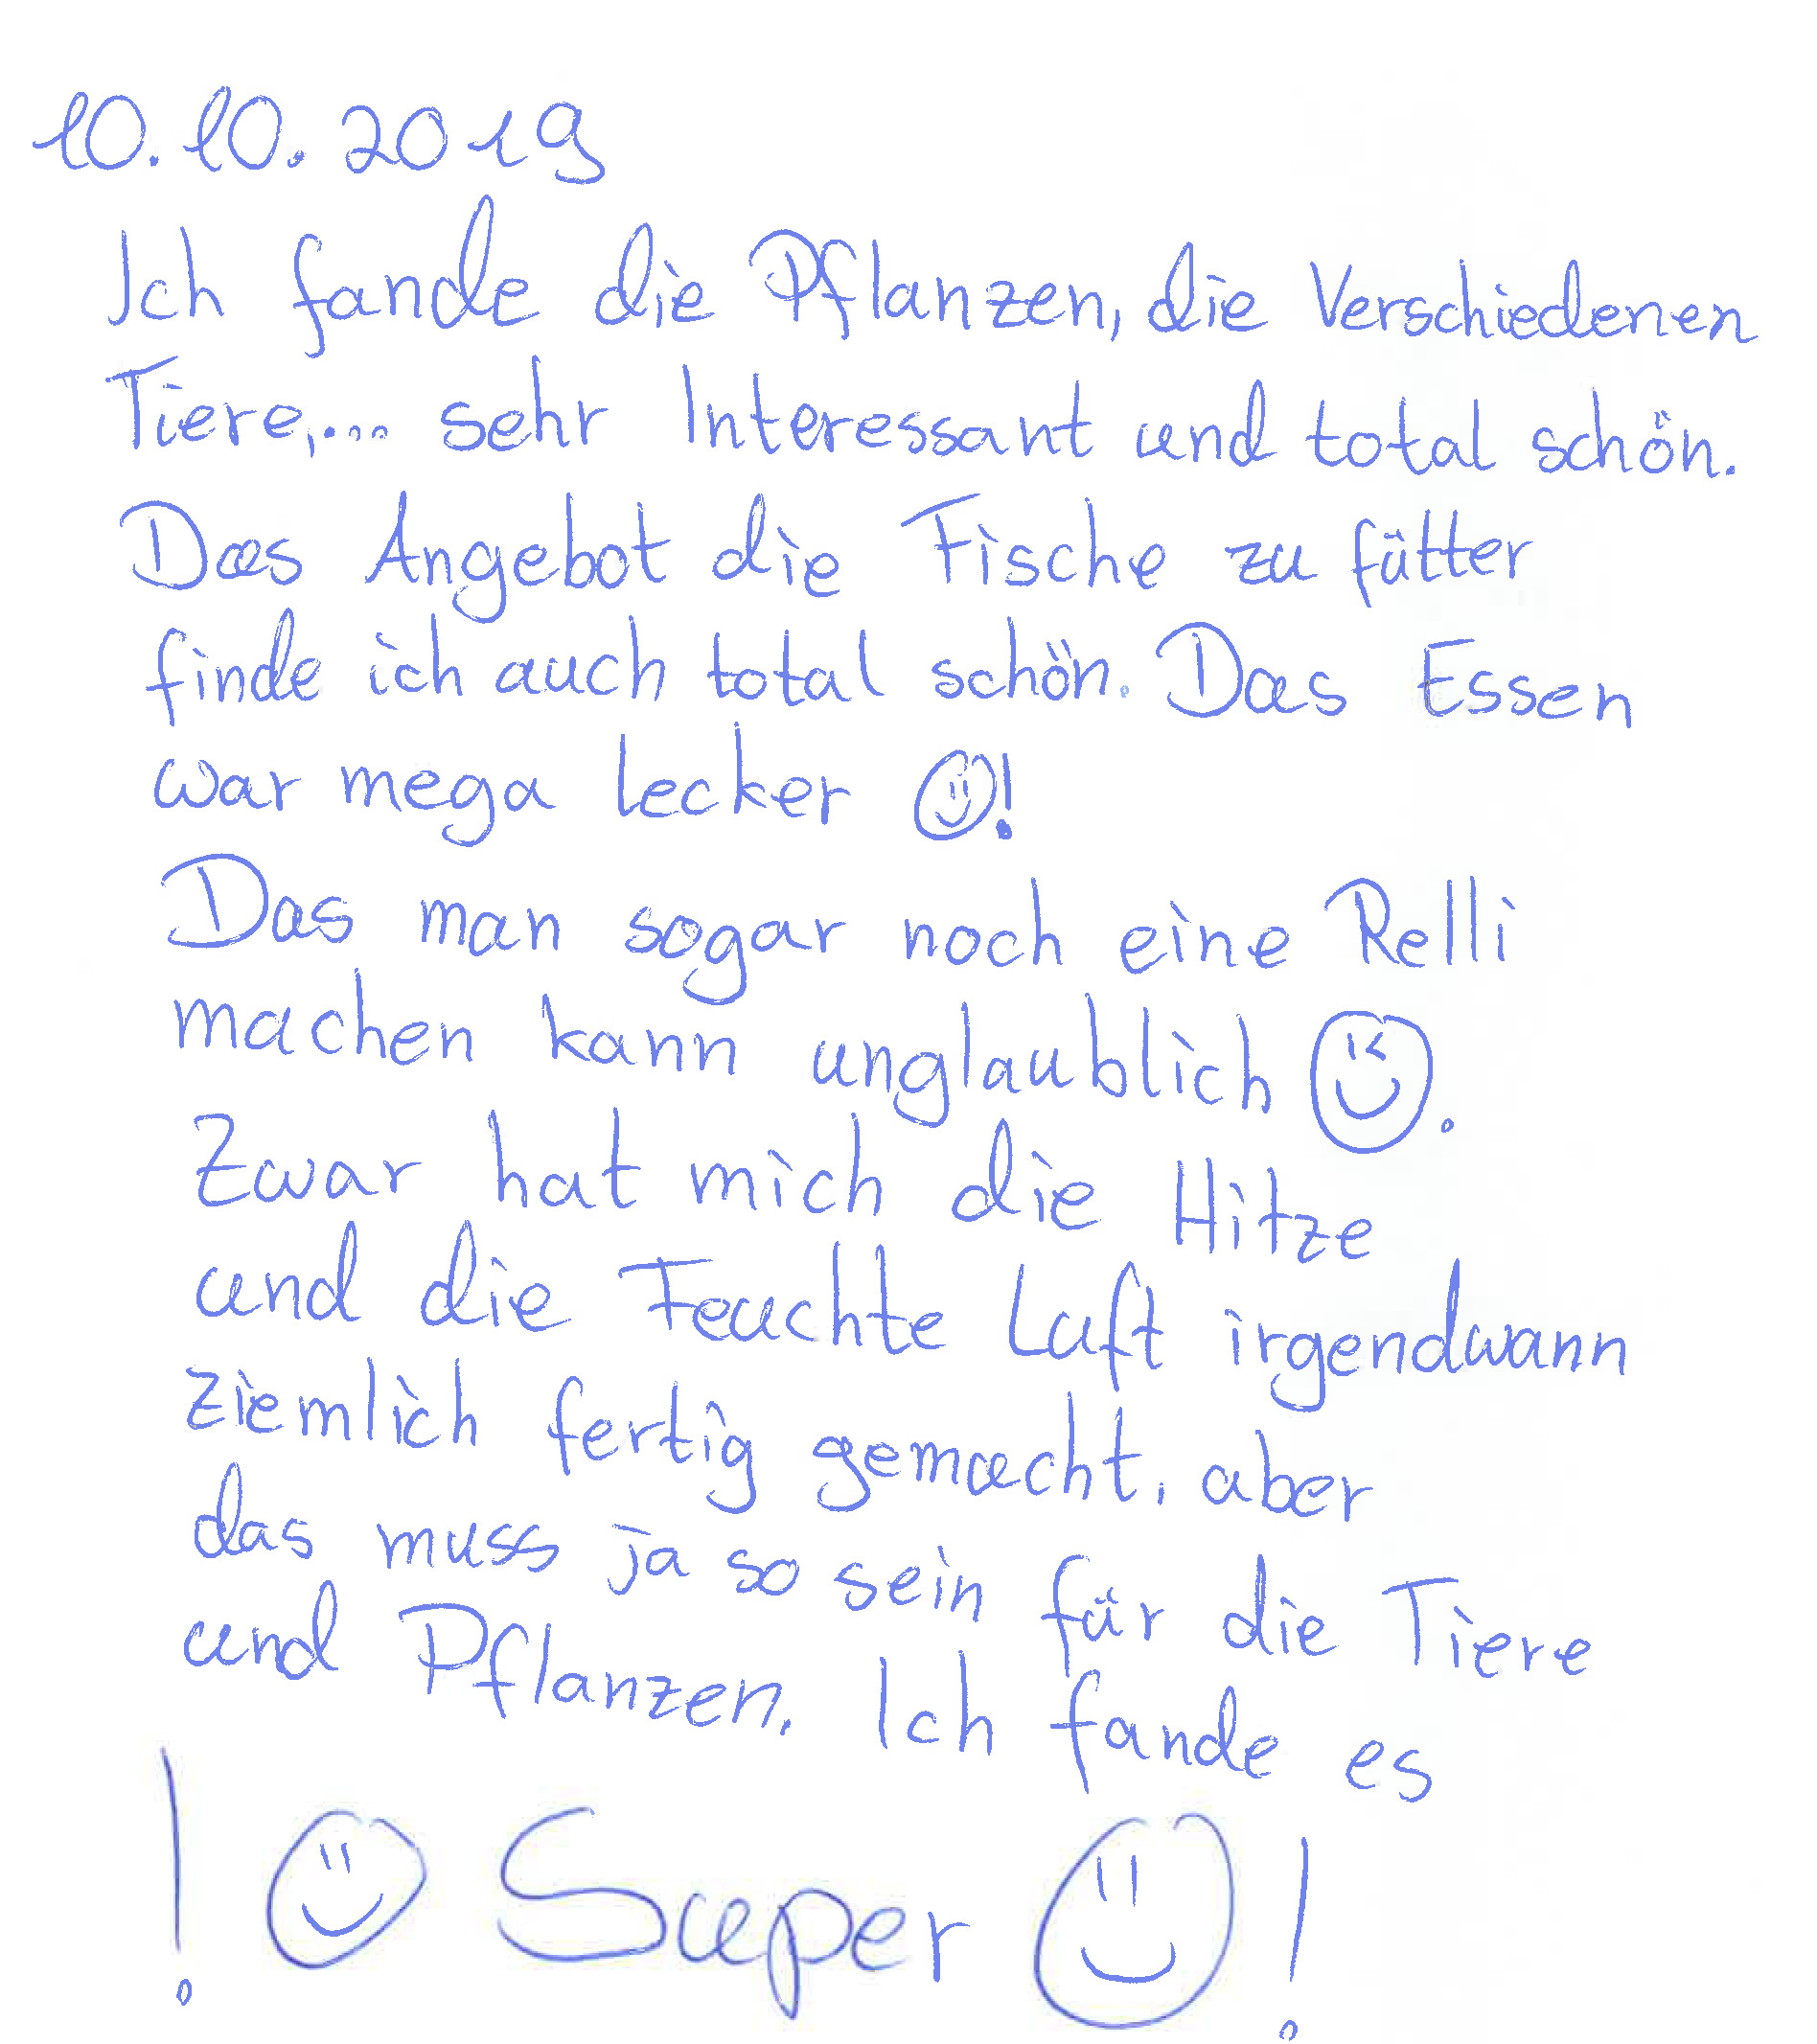 10.10.2019
Ich fande die Pflanzen, die Verschiedenen
Tiere,... sehr Interessant und total schön.
Das Angebot die Fische zu fütter
finde ich auch total schön. Das Essen
war mega lecker ☺!
Das man sogar noch eine Relli
machen kann unglaublich ☺.
Zwar hat mich die Hitze
und die Feuchte Luft irgendwann
ziemlich fertig gemacht, aber
das muss ja so sein für die Tiere
und Pflanzen. Ich fande es
! ☺ Super ☺ !